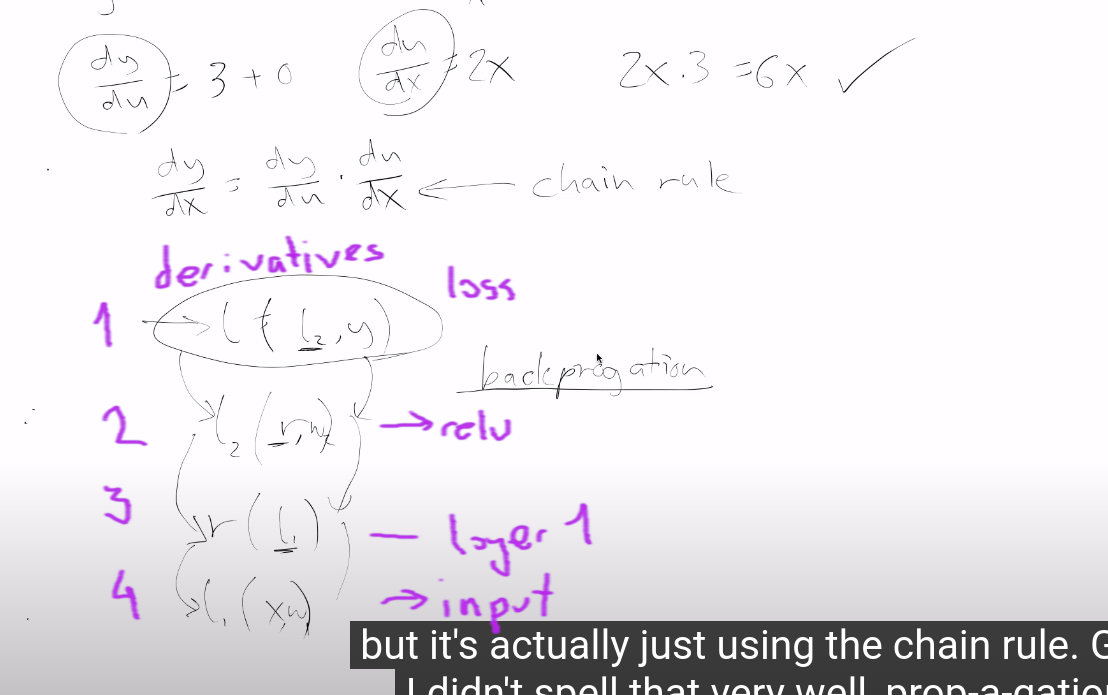 dy/du = 3 + 0   du/dx = 2x   2x . 3 = 6x ✓
dy/dx = dy/du . du/dx ← chain rule
derivatives
loss
1 → l ( l₂, y)
backprogation
2 l₂ (r, w₂) → relu
3 r (l₁) — layer 1
4 l₁ (x, w₁) → input
but it's actually just using the chain rule. G
I didn't spell that very well, prop-a-gatio